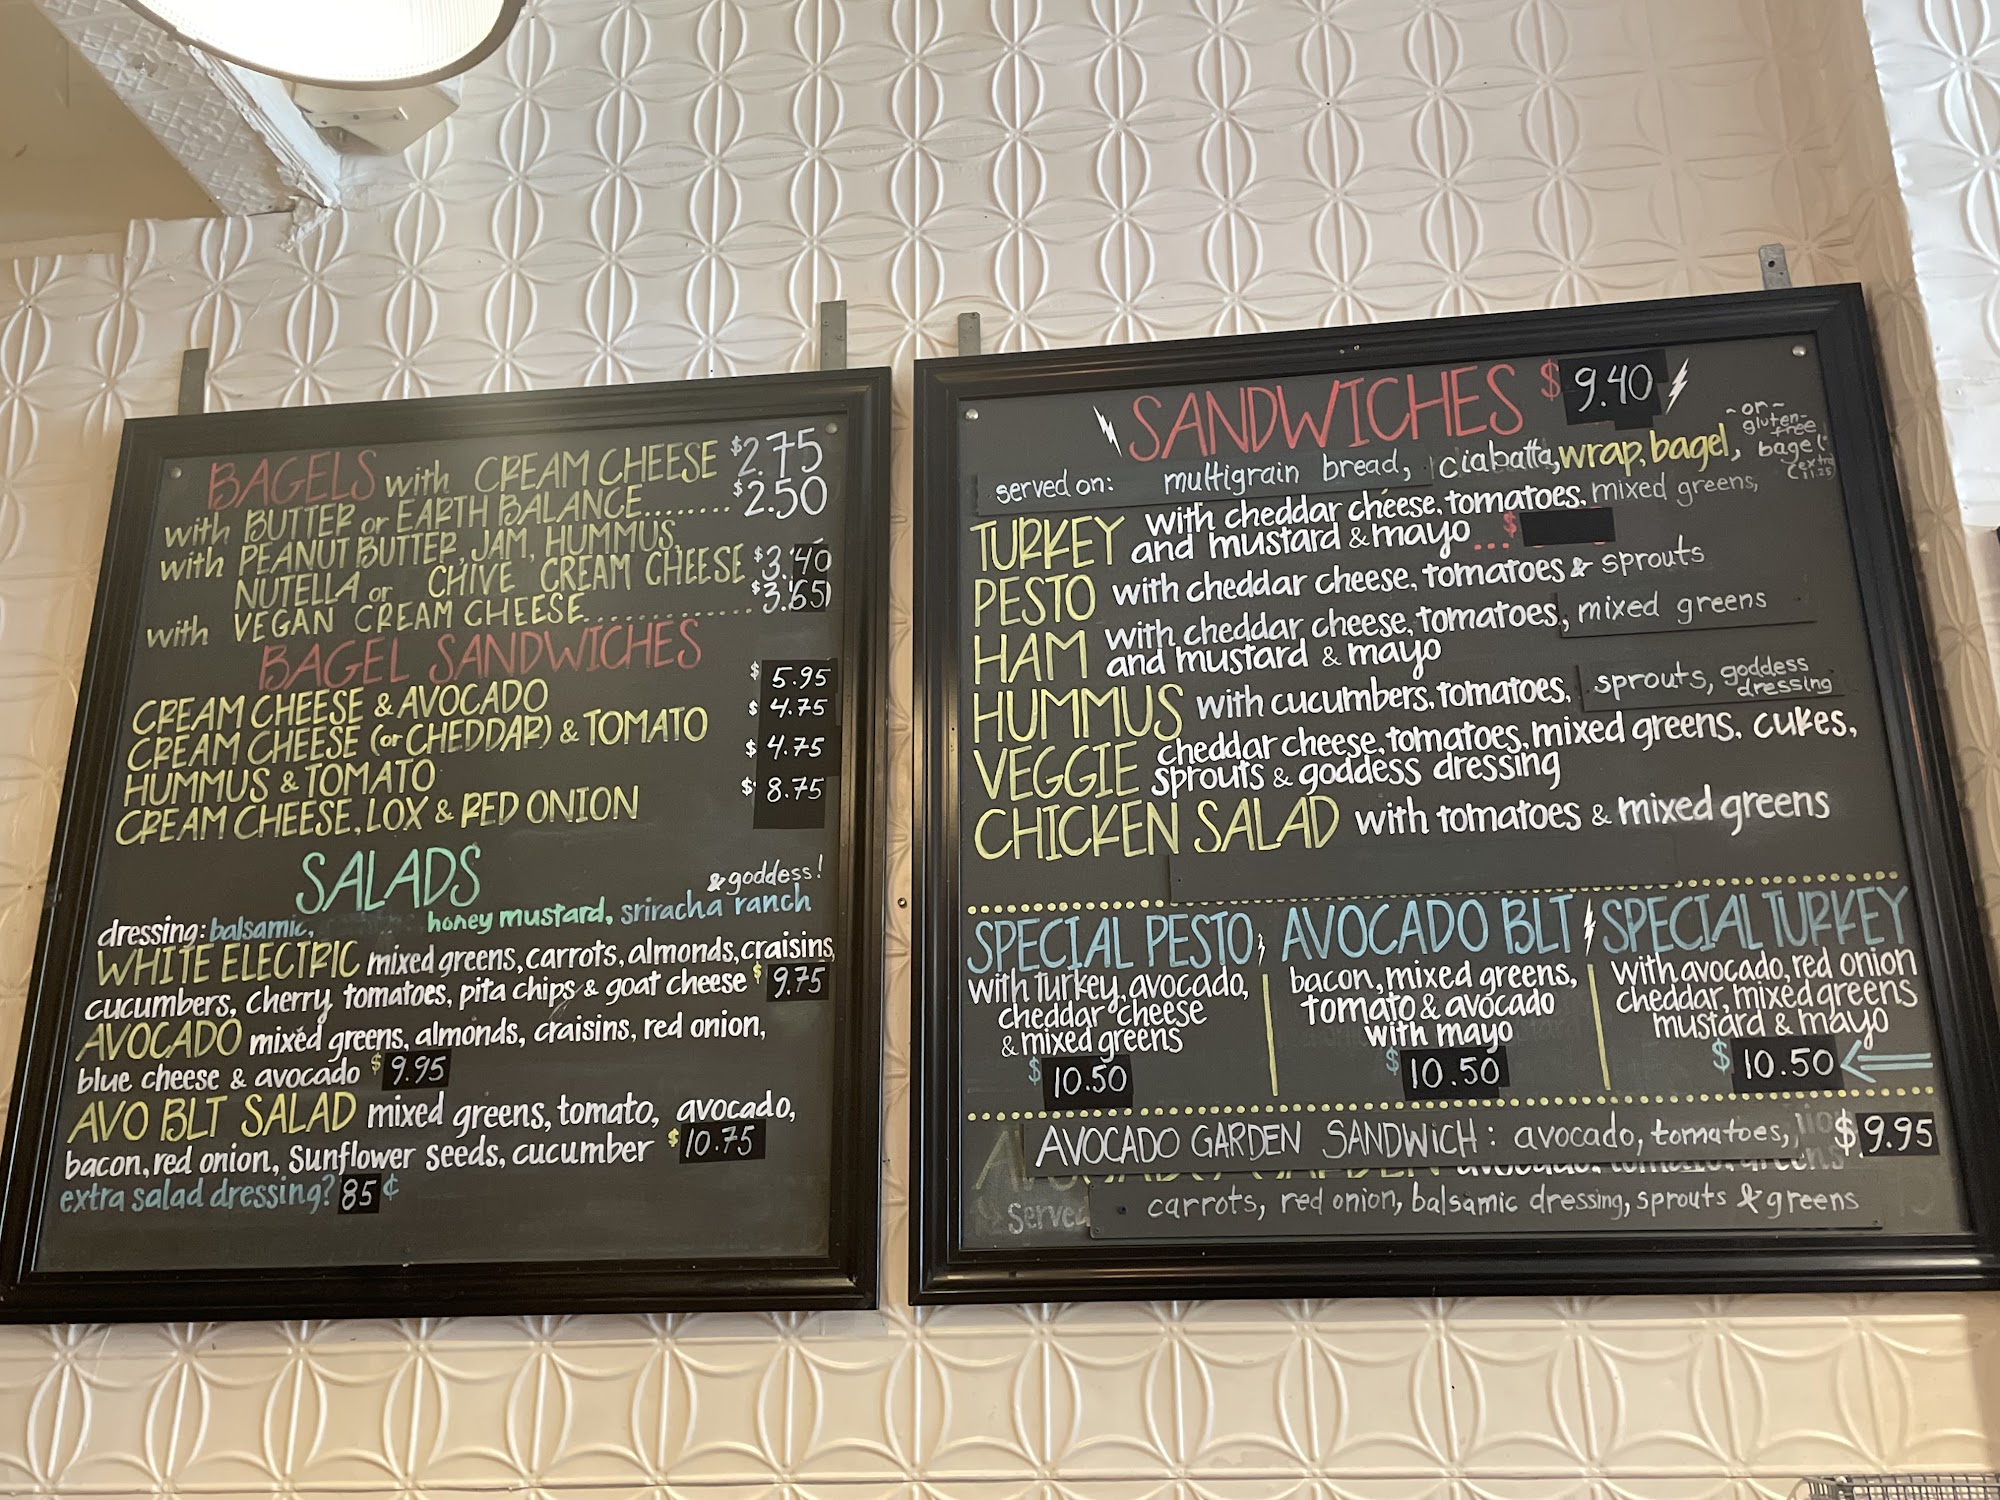 BAGELS with CREAM CHEESE $2.75
with BUTTER or EARTH BALANCE........ $2.50
with PEANUT BUTTER, JAM, HUMMUS,
NUTELLA or CHIVE CREAM CHEESE $3.40
with VEGAN CREAM CHEESE............ $3.65
BAGEL SANDWICHES
CREAM CHEESE & AVOCADO $5.95
CREAM CHEESE (or CHEDDAR) & TOMATO $4.75
HUMMUS & TOMATO $4.75
CREAM CHEESE, LOX & RED ONION $8.75
SALADS
& goddess!
dressing: balsamic, honey mustard, sriracha ranch
WHITE ELECTRIC mixed greens, carrots, almonds, craisins,
cucumbers, cherry tomatoes, pita chips & goat cheese $9.75
AVOCADO mixed greens, almonds, craisins, red onion,
blue cheese & avocado $9.95
AVO BLT SALAD mixed greens, tomato, avocado,
bacon, red onion, sunflower seeds, cucumber $10.75
extra salad dressing? 85¢
SANDWICHES $9.40
served on: multigrain bread, ciabatta, wrap, bagel,
~or~
gluten-
free
bagel
extra
TURKEY with cheddar cheese, tomatoes, mixed greens,
and mustard & mayo ... $
PESTO with cheddar cheese, tomatoes & sprouts
HAM with cheddar cheese, tomatoes, mixed greens
and mustard & mayo
HUMMUS with cucumbers, tomatoes, sprouts, goddess
dressing
VEGGIE cheddar cheese, tomatoes, mixed greens, cukes,
sprouts & goddess dressing
CHICKEN SALAD with tomatoes & mixed greens
SPECIAL PESTO
with Turkey, avocado,
cheddar cheese
& mixed greens
$10.50
AVOCADO BLT
bacon, mixed greens,
tomato & avocado
with mayo
$10.50
SPECIAL TURKEY
with avocado, red onion
cheddar, mixed greens
mustard & mayo
$10.50
AVOCADO GARDEN SANDWICH: avocado, tomatoes, $9.95
Served
carrots, red onion, balsamic dressing, sprouts & greens